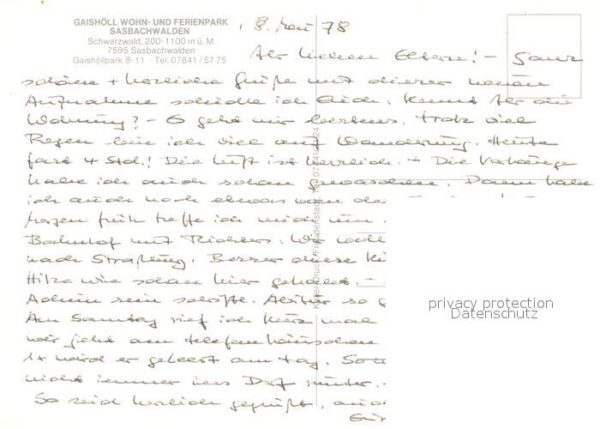 GAISHÖLL WOHN- UND FERIENPARK
SASBACHWALDEN
Schwarzwald, 200-1100 m ü. M.
7595 Sasbachwalden
Gaishöllpark 8-11 Tel. 07841/5775
8. Mai 78
Ihr lieben Eltern! - Ganz
schöne + herzliche Grüße mit dieser neuen
Aufnahme schicke ich Euch. Kennt Ihr die
Wohnung? - Es geht mir bestens. Trotz viel
Regen bin ich viel auf Wanderung. Heute
fast 4 Std.! Die Luft ist herrlich. - Die Vorhänge
habe ich auch schon gewaschen. Dann habe
ich auch noch etwas von
Morgen früh treffe ich mich um
Bahnhof mit Richters. Wir
nach Straßburg. Besser diese
Hitze wie schon hier gehabt. -
sein Abitur so
Am Samstag rief ich kurz mal
wir jetzt am Telefonhäuschen
1x wird er geleert am Tag.
nicht immer ins Dorf runter.
So seid herzlich gegrüßt,
privacy protection
Datenschutz